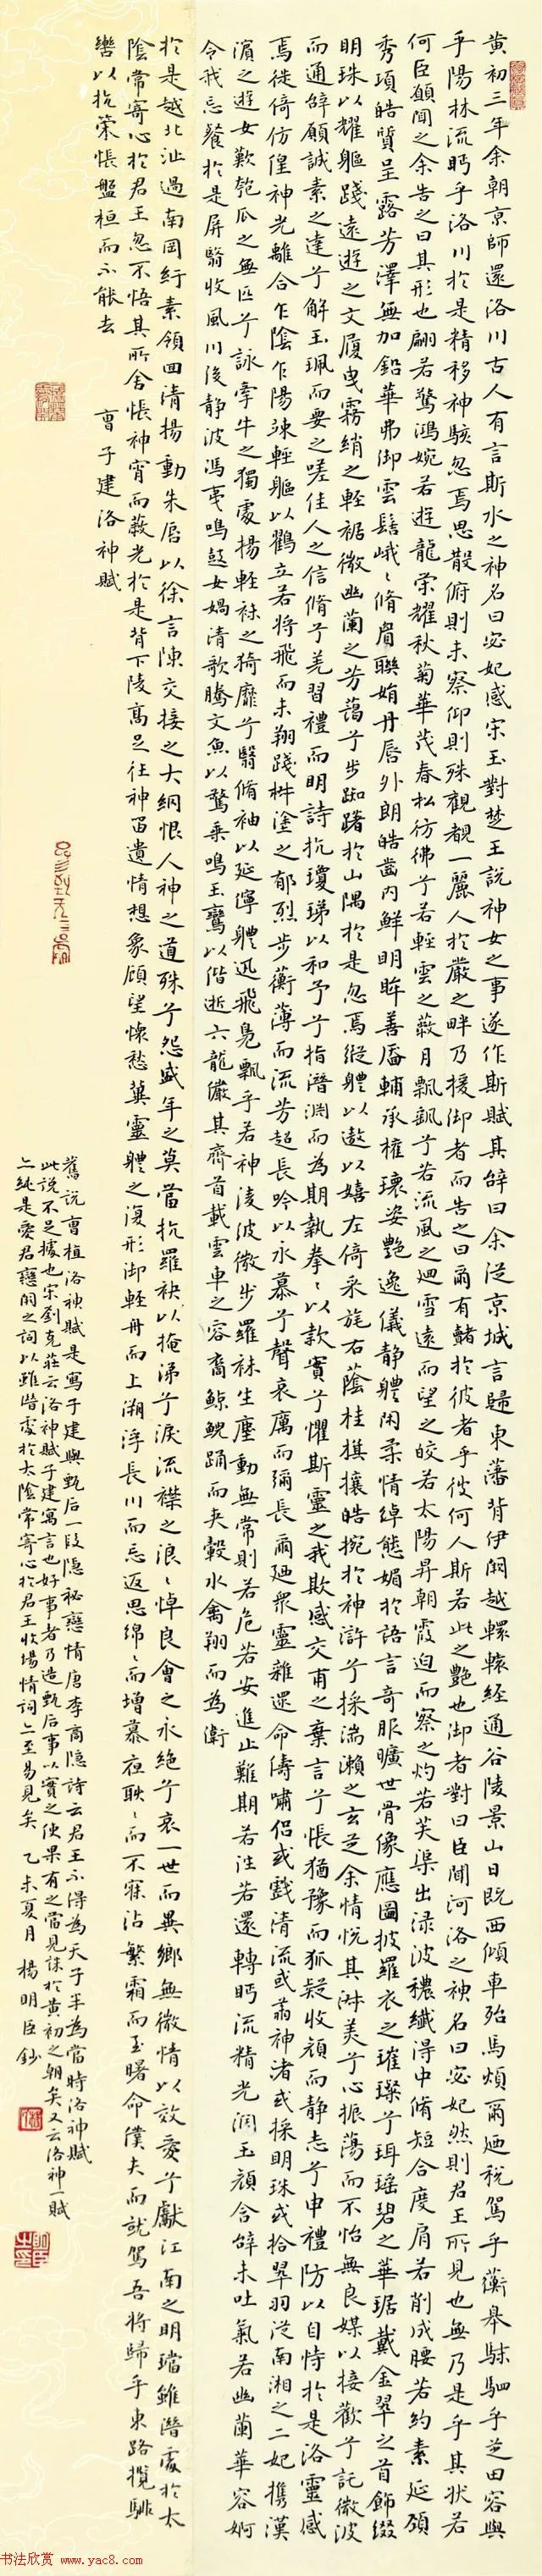 黄初三年余朝京師還洛川古人有言斯水之神名曰宓妃感宋玉對楚王說神女之事遂作斯賦其辭曰余從京城言歸東藩背伊闕越轘轅經通谷陵景山日既西傾車殆馬煩爾迺稅駕乎蘅皋秣駟乎芝田容與
乎陽林流眄乎洛川於是精移神駭忽焉思散俯則未察仰則殊觀覩一麗人於巖之畔乃援御者而告之曰爾有覿於彼者乎彼何人斯若此之艷也御者對曰臣聞河洛之神名曰宓妃然則君王所見也無乃是乎其狀若
何臣願聞之余告之曰其形也翩若驚鴻婉若遊龍榮耀秋菊華茂春松彷彿兮若輕雲之蔽月飄颻兮若流風之迴雪遠而望之皎若太陽昇朝霞迫而察之灼若芙渠出淥波穠纖得中脩短合度肩若削成腰若約素延頸
秀項皓質呈露芳澤無加鉛華弗御雲髻峨峨脩眉聯娟丹唇外朗皓齒內鮮明眸善睞輔承權瓌姿艷逸儀靜體閑柔情綽態媚於語言奇服曠世骨像應圖披羅衣之璀璨兮珥瑤碧之華琚戴金翠之首飾綴
明珠以耀軀踐遠遊之文履曳霧綃之輕裾微幽蘭之芳藹兮步踟躕於山隅於是忽焉縱體以遨以嬉左倚采旄右蔭桂旗攘皓捥於神滸兮採湍瀨之玄芝余情悅其淑美兮心振蕩而不怡無良媒以接歡兮託微波
而通辭願誠素之達兮解玉珮而要之嗟佳人之信脩兮羌習禮而明詩抗瓊珶以和予兮指潛淵而為期執拳拳以款實兮懼斯靈之我欺感交甫之棄言兮悵猶豫而狐疑收顏而靜志兮申禮防以自持於是洛靈感
焉徙倚彷徨神光離合乍陰乍陽竦輕軀以鶴立若將飛而未翔踐椒塗之郁烈步蘅薄而流芳超長吟以永慕兮聲哀厲而彌長爾迺眾靈雜遝命儔嘯侶或戲清流或翥神渚或採明珠或拾翠羽從南湘之二妃攜漢
濱之遊女歎匏瓜之無匹兮詠牽牛之獨處揚輕袿之猗靡兮翳脩袖以延佇體迅飛鳧飄乎若神淩波微步羅襪生塵動無常則若危若安進止難期若往若還轉眄流精光潤玉顏含辭未吐氣若幽蘭華容婀
令我忘餐於是屏翳收風川後靜波馮夷鳴鼓女媧清歌騰文魚以警乘鳴玉鸞以偕逝六龍儼其齊首載雲車之容裔鯨鯢踴而夾轂水禽翔而為衛
於是越北沚過南岡紆素領回清揚動朱唇以徐言陳交接之大綱恨人神之道殊兮怨盛年之莫當抗羅袂以掩涕兮淚流襟之浪浪悼良會之永絕兮哀一世而異鄉無微情以效愛兮獻江南之明璫雖潛處於太
陰常寄心於君王忽不悟其所舍悵神宵而蔽光於是背下陵高足往神留遺情想象顧望懷愁冀靈體之復形御輕舟而上溯浮長川而忘返思綿綿而增慕夜耿耿而不寐沾繁霜而至曙命僕夫而就駕吾將歸乎東路攬騑
轡以抗策悵盤桓而不能去
曹子建洛神賦
舊說曹植洛神賦是寫子建與甄后一段隱秘戀情唐李商隱詩云君王不得為天子半為當時洛神賦
此說不足據也宋劉克莊云洛神賦子建寓言也好事者乃造甄后事以實之使果有之當見誅於黃初之朝矣又云洛神一賦
亦純是愛君戀闕之詞以雖潛處於太陰常寄心於君王收場情詞亦至易見矣 乙未夏月 楊明臣鈔
书法欣赏 www.yac8.com